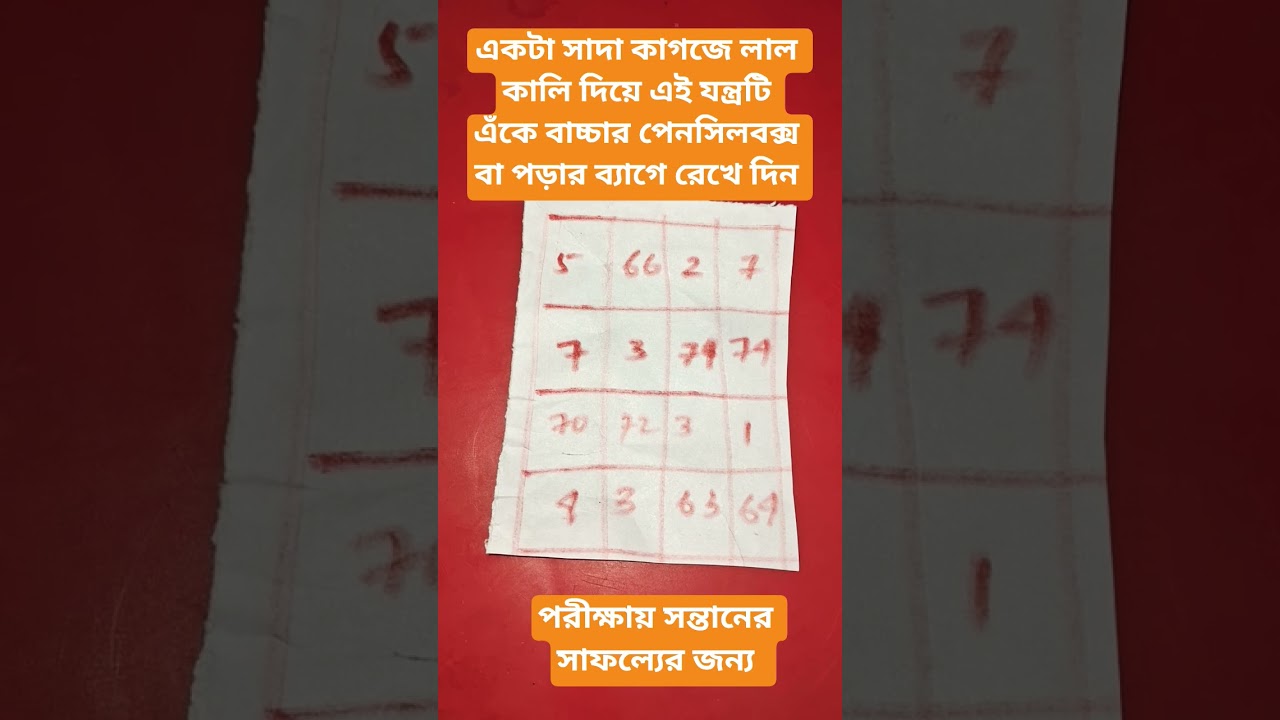 একটা সাদা কাগজে লাল
কালি দিয়ে এই যন্ত্রটি
এঁকে বাচ্চার পেনসিলবক্স
বা পড়ার ব্যাগে রেখে দিন
5 66 2 7
7 3 74 74
70 72 3 1
4 3 63 64
পরীক্ষায় সন্তানের
সাফল্যের জন্য